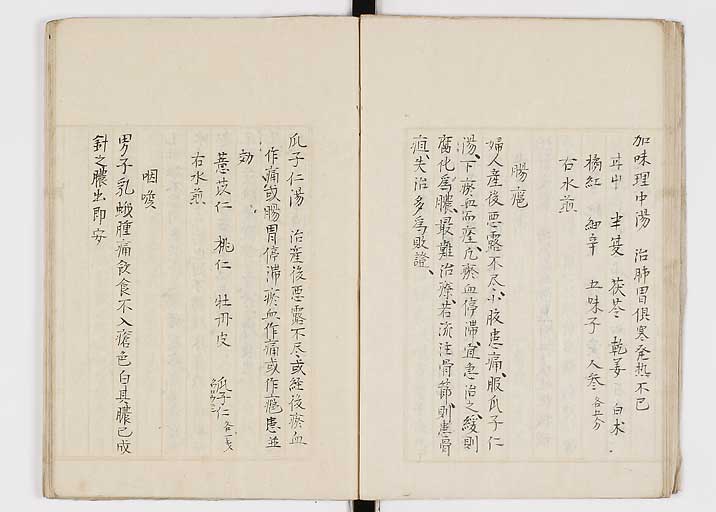 加味理中湯　治肺胃俱寒発熱不已
甘中　半夏　茯苓　乾姜　白朮
橘紅　細辛　五味子　人参 各五分
右水煎
腸癰
婦人産後悪露不尽小腹患痛、服瓜子仁
湯、下瘀血而痊、凡瘀血停滞、宜急治之、緩則
腐化為膿、最難治療、若流注骨節、則患骨
疽、失治多為敗證、
瓜子仁湯　治産後悪露不尽或経後瘀血
作痛或腸胃停滞瘀血作痛或作癰患並
効
薏苡仁　桃仁　牡丹皮　瓜子仁 各一戔
右水煎
咽喉
男子乳蛾腫痛飲食不入瘡色白其膿已成
針之膿出即安